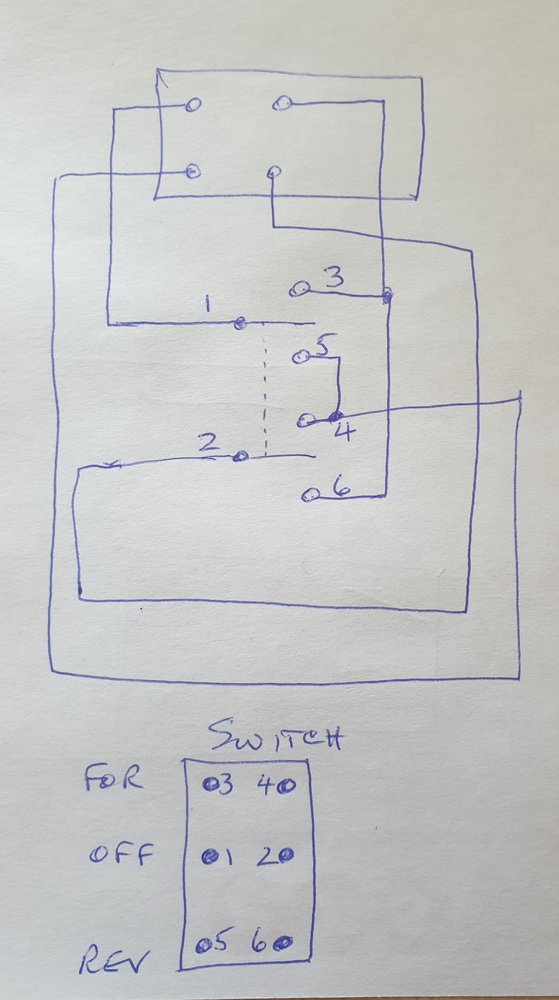 3
1
5
4
2
6
SWITCH
FOR 3 4
OFF 1 2
REV 5 6